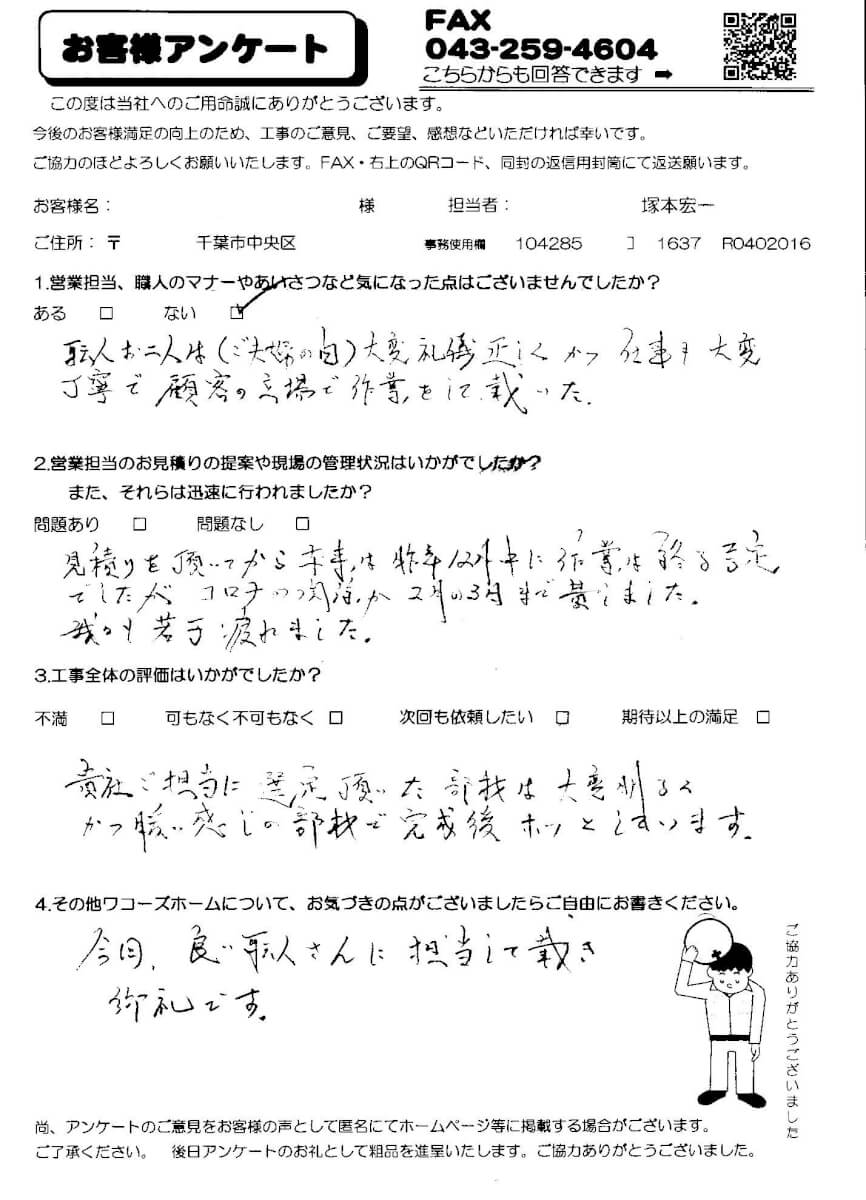 お客様アンケート
FAX
043-259-4604
こちらからも回答できます ➡
この度は当社へのご用命誠にありがとうございます。
今後のお客様満足の向上のため、工事のご意見、ご要望、感想などいただければ幸いです。
ご協力のほどよろしくお願いいたします。FAX・右上のQRコード、同封の返信用封筒にて返送願います。
お客様名： 様 担当者： 塚本宏一
ご住所：〒 千葉市中央区 事務使用欄 104285 ］ 1637 R0402016
1.営業担当、職人のマナーやあいさつなど気になった点はございませんでしたか？
ある □ ない ☑
職人お二人は（ご夫婦の由）大変礼儀正しくかつ仕事も大変
丁寧で顧客の立場で作業をして戴いた。
2.営業担当のお見積りの提案や現場の管理状況はいかがでしたか？
また、それらは迅速に行われましたか？
問題あり □ 問題なし □
見積りを頂いてから 本来は昨年12月中に作業は終る予定
でしたが コロナの関係か2月の3月まで
我々も若干疲れました。
3.工事全体の評価はいかがでしたか？
不満 □ 可もなく不可もなく □ 次回も依頼したい □ 期待以上の満足 □
貴社ご担当に選定頂いた部材は大変明るく
かつ暖い感じの部材で完成後ホッとしています。
4.その他ワコーズホームについて、お気づきの点がございましたらご自由にお書きください。
今回、良い職人さんに担当して戴き
御礼です。
ご協力ありがとうございました
尚、アンケートのご意見をお客様の声として匿名にてホームページ等に掲載する場合がございます。
ご了承ください。 後日アンケートのお礼として粗品を進呈いたします。ご協力ありがとうございました。